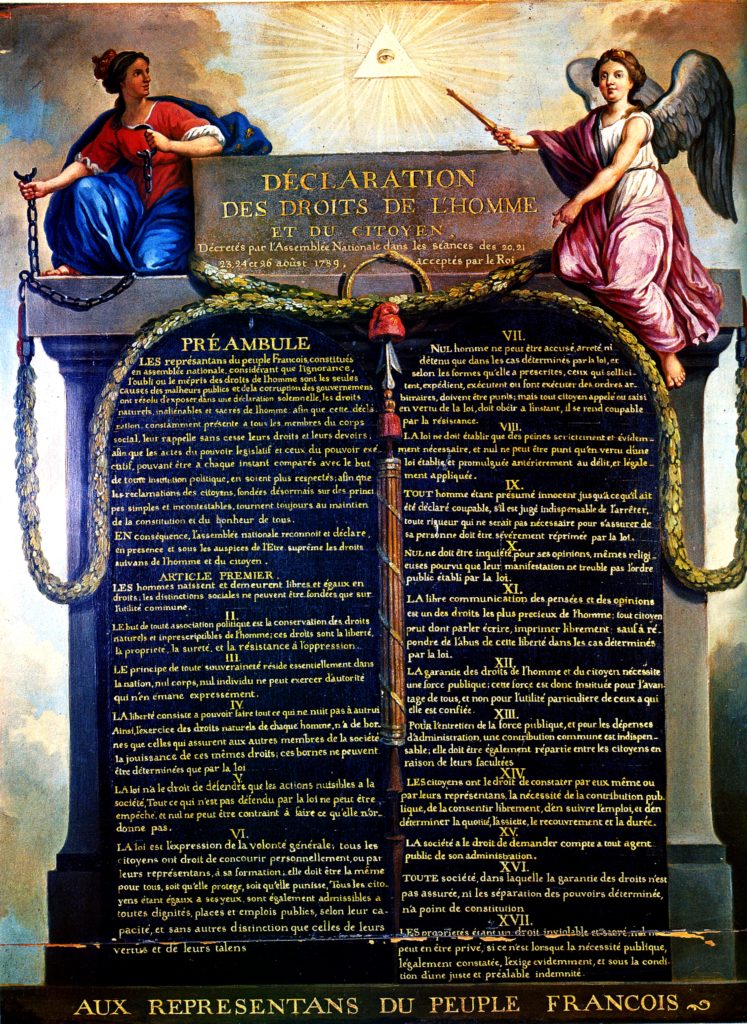 DÉCLARATION
DES DROITS DE L'HOMME
ET DU CITOYEN,
Décretés par l'Assemblée Nationale dans les séances des 20, 21
23, 24 et 26 août 1789, acceptés par le Roi
PRÉAMBULE
LES représentans du peuple François, constitués
en assemblée nationale, considérant que l'ignorance,
l'oubli ou le mépris des droits de l'homme sont les seules
causes des malheurs publics et de la corruption des gouvernemens
ont résolu d'exposer dans une déclaration solemnelle, les droits
naturels, inaliénables et sacrés de l'homme: afin que cette décla
ration, constamment présente a tous les membres du corps
social, leur rappelle sans cesse leurs droits et leurs devoirs,
afin que les actes du pouvoir legislatif et ceux du pouvoir exé
cutif, pouvant être a chaque instant comparés avec le but
de toute institution politique, en soient plus respectés; afin que
les reclamations des citoyens, fondées désormais sur des princi
pes simples et incontestables, tournent toujours au maintien
de la constitution et du bonheur de tous.
EN conséquence, l'assemblée nationale reconnoit et déclare,
en presence et sous les auspices de l'Etre suprême les droits
suivans de l'homme et du citoyen.
ARTICLE PREMIER.
LES hommes naissent et demeurent libres et égaux en
droits; les distinctions sociales ne peuvent être fondées que sur
l'utilité commune.
II.
LE but de toute association politique est la conservation des droits
naturels et inprescriptibles de l'homme; ces droits sont la liberté,
la propriété, la sureté, et la résistance à l'oppression.
III.
LE principe de toute souveraineté réside essentiellement dans
la nation, nul corps, nul individu ne peut exercer d'autorité
qui n'en émane expressément.
IV.
LA liberté consiste a pouvoir faire tout ce qui ne nuit pas à autrui
Ainsi, l'exercice des droits naturels de chaque homme, n'a de bor-
nes que celles qui assurent aux autres membres de la société
la jouissance de ces mêmes droits; ces bornes ne peuvent
être déterminées que par la loi
V.
LA loi n'a le droit de défendre que les actions nuisibles a la
société, Tout ce qui n'est pas défendu par la loi ne peut être
empêché, et nul ne peut être contraint à faire ce qu'elle n'or-
donne pas.
VI.
LA loi est l'expression de la volonté générale; tous les
citoyens ont droit de concourir personnellement, ou par
leurs représentans, à sa formation; elle doit être la même
pour tous, soit qu'elle protege, soit qu'elle punisse, Tous les cito-
yens étant égaux a ses yeux, sont également admissibles a
toutes dignités, places et emplois publics, selon leur ca-
pacité, et sans autres distinction que celles de leurs
vertus et de leurs talens
VII.
NUL homme ne peut être accusé, arreté, ni
détenu que dans les cas déterminés par la loi, et
selon les formes qu'elle a prescrites, ceux qui sollici-
tent, expédient, exécutent ou font exécuter des ordres ar-
bitraires, doivent être punis; mais tout citoyen appelé ou saisi
en vertu de la loi, doit obéir a l'instant, il se rend coupable
par la résistance.
VIII.
LA loi ne doit établir que des peines strictement et évidem-
ment nécessaire, et nul ne peut être puni qu'en vertu d'une
loi établie, et promulguée antérierement au délit, et légale-
ment appliquée.
IX.
TOUT homme étant présumé innocent jusqu'à ce qu'il ait
été déclaré coupable, s'il est jugé indispensable de l'arrêter,
toute rigueur qui ne serait pas nécessaire pour s'assurer de
sa personne doit être sévèrement réprimée par la loi.
X.
NUL ne doit être inquiété pour ses opinions, mêmes religi-
euses pourvu que leur manifestation ne trouble pas l'ordre
public établi par la loi.
XI.
LA libre communication des pensées et des opinions
est un des droits les plus precieux de l'homme; tout citoyen
peut dont parler écrire, imprimer librement: sauf à ré-
pondre de l'abus de cette liberté dans les cas déterminés
par la loi.
XII.
LA garantie des droits de l'homme et du citoyen nécessite
une force publique; cette force est donc instituée pour l'avan-
tage de tous, et non pour l'utilité particuliere de ceux a qui
elle est confiée.
XIII.
POUR l'entretien de la force publique, et pour les dépenses
d'administration, une contribution commune est indispen-
sable; elle doit être également répartie entre les citoyens en
raison de leurs facultées
XIV.
LES citoyens ont le droit de constater par eux même ou
par leurs représentans, la nécessité de la contribution pub-
lique, de la consentir librement, d'en suivre l'emploi, et d'en
déterminer la quotité, l'assiette, le recouvrement et la durée.
XV.
LA société a le droit de demander compte a tout agent
public de son administration.
XVI.
TOUTE société, dans laquelle la garantie des droits n'est
pas assurée, ni les séparation des pouvoirs déterminée,
n'a point de constitution
XVII.
LES proprietés étant un droit inviolable et sacré, nul ne
peut en être privé, si ce n'est lorsque la nécessité publique,
légalement constatée, l'exige evidemment, et sous la condi
tion d'une juste et préalable indemnité.
AUX REPRESENTANS DU PEUPLE FRANCOIS